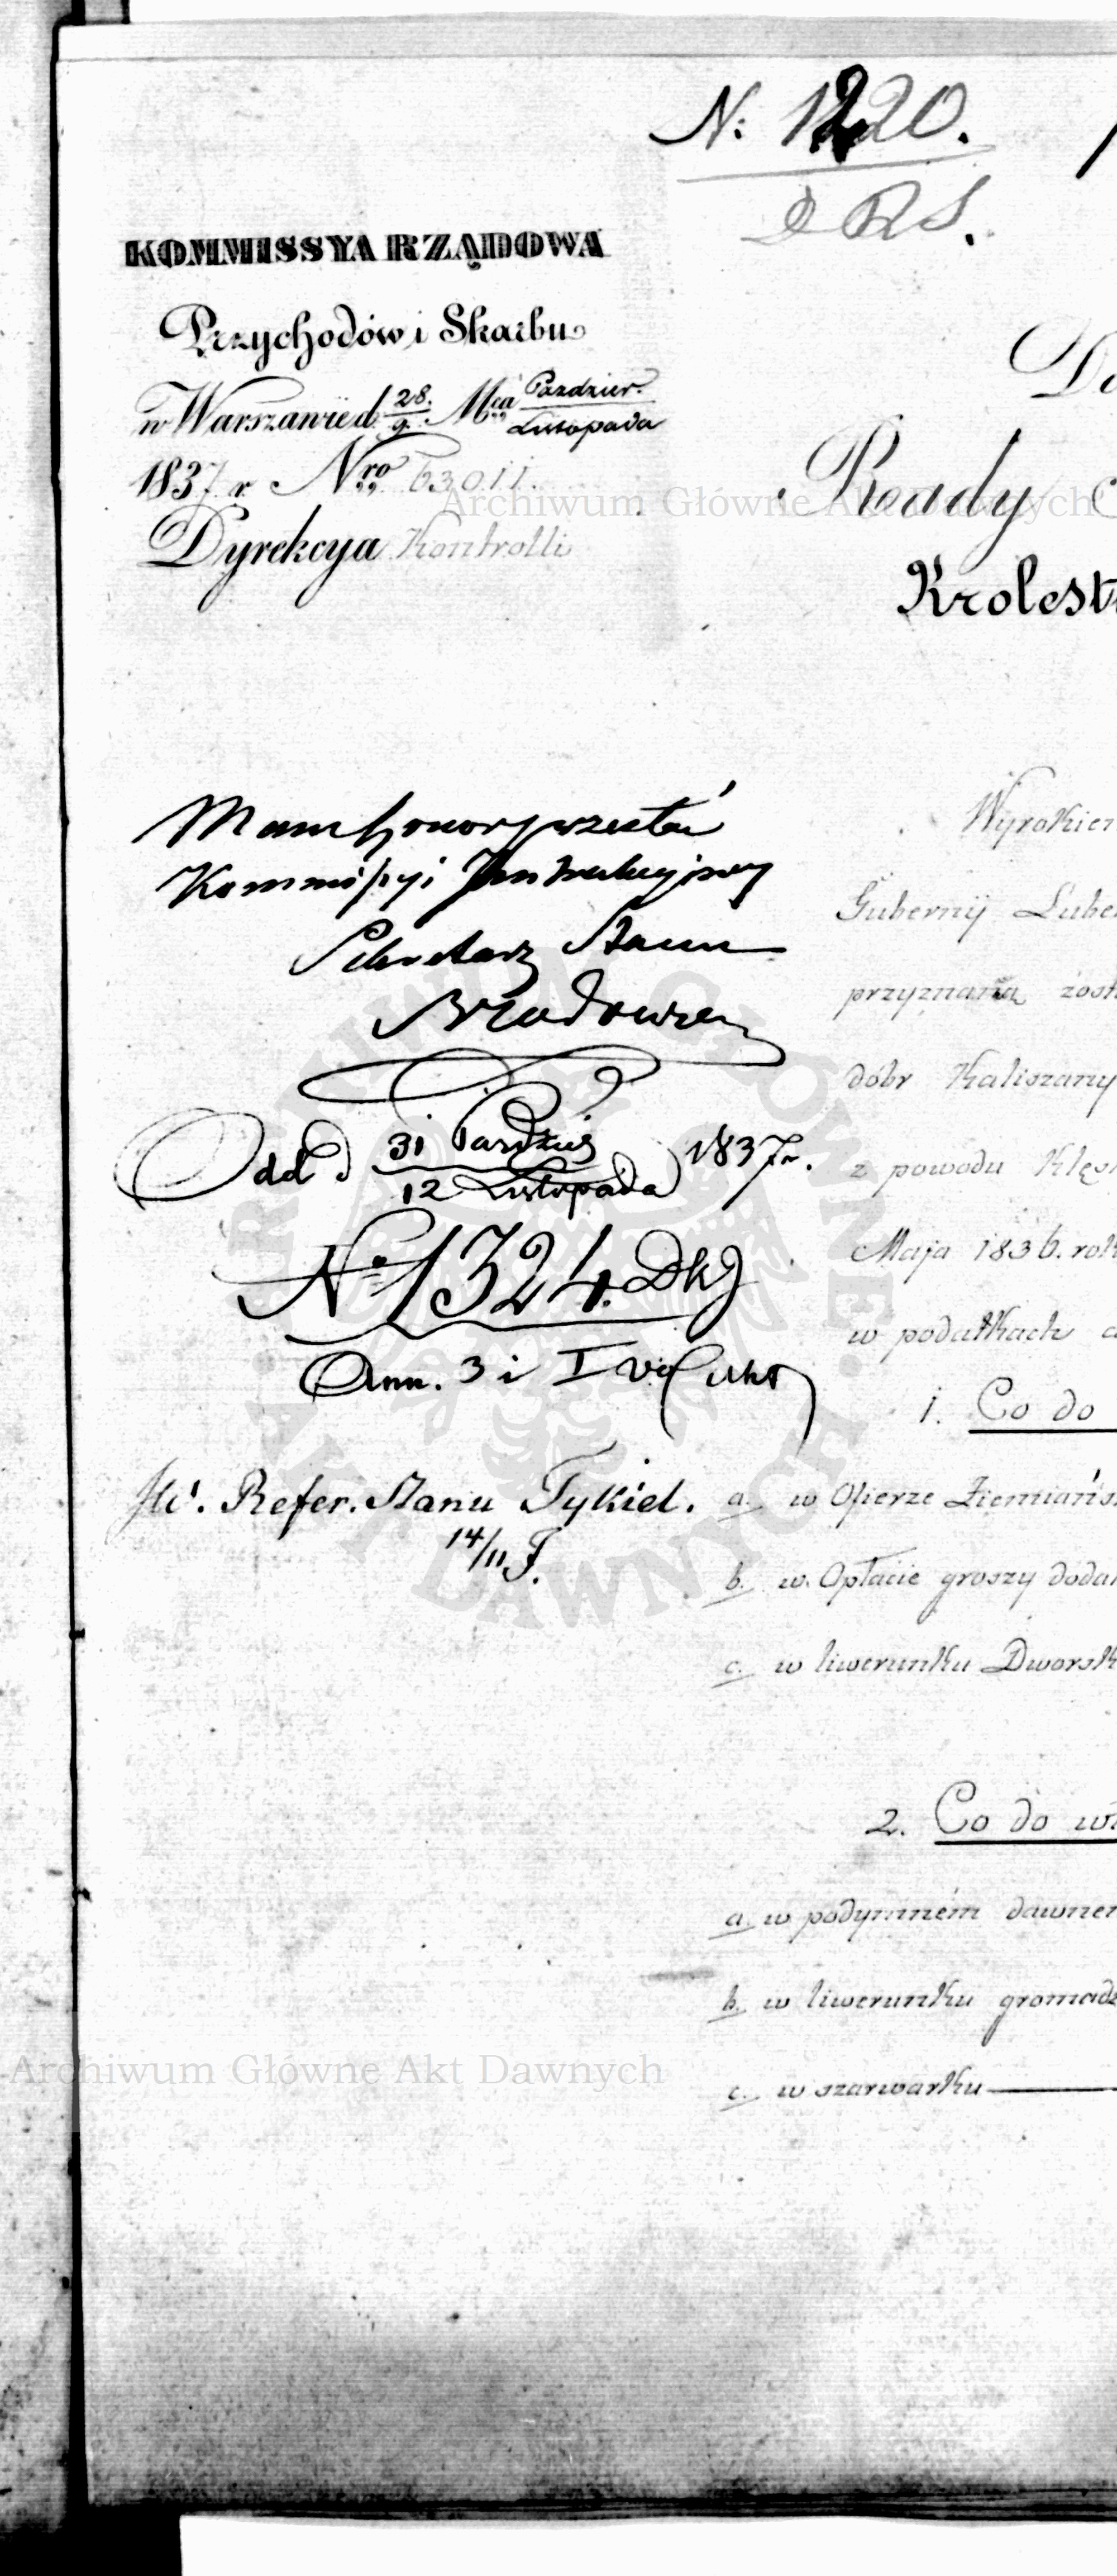 N: 1220.
D R S.
KOMMISSYA RZĄDOWA
Przychodów i Skarbu
w Warszawie d. 28./9. Mca Paździer./Listopada
1837 r. Nro 63011.
Dyrekcya Kontrolli
Do
Rady
Krolest
Mam honor przesłać
Kommissyi
Sekretarz Stanu
Odd d 31 Paździer/12 Listopada 1837 r.
No 1324.
Ann. 3 i I
JW. Refer. Stanu Tykiel.
14/11 J.
Wyrokiem
Gubernij Lube
przyznaną zost
dóbr Kaliszany
z powodu Klęs
Maja 1836. rok
w podatkach
1. Co do
a. w Ofierze Ziemiańs
b. w Opłacie groszy dodat
c. w liwerunku Dworsk
2. Co do wł
a. w podymném dawnem
b. w liwerunku gromadz
c. w szarwarku
Archiwum Główne Akt Dawnych
Archiwum Główne Akt Dawnych
ARCHIWUM GŁÓWNE AKT DAWNYCH